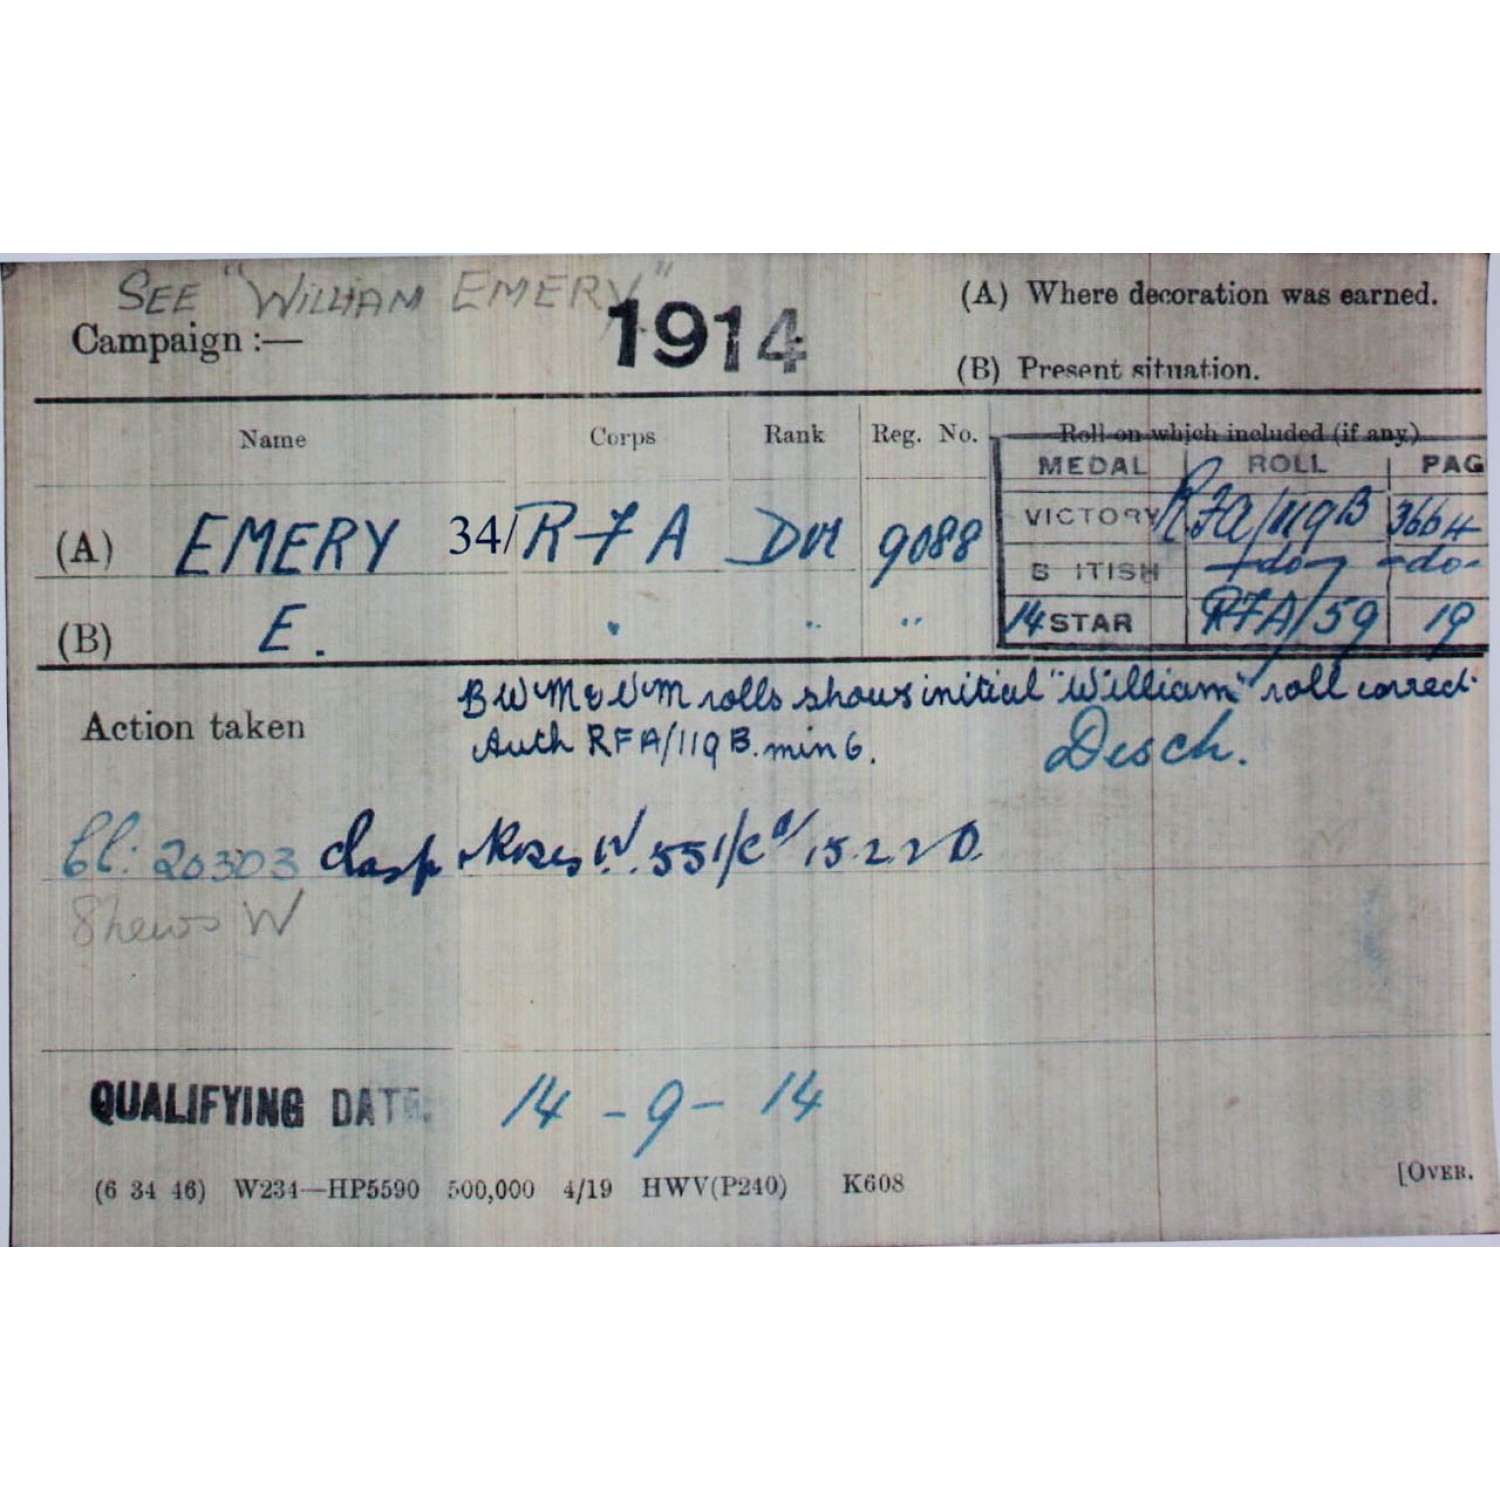 SEE "WILLIAM EMERY"
Campaign :— 1914
(A) Where decoration was earned.
(B) Present situation.
Name Corps Rank Reg. No. Roll on which included (if any)
MEDAL ROLL PAG
(A) EMERY 34/R F A DVR 9088
VICTORY RFA/119B 3664
B ITISH -do- -do-
(B) E. " " "
14 STAR RFA/59 19
Action taken
B W M & V M rolls shows initial "William" roll correct.
Auth RFA/119 B. min 6. Disch.
Cl: 20303 Clasp & Roses IV. 551/ 15.2.2 D.
Shews W
QUALIFYING DATE. 14 - 9 - 14
(6 34 46) W234—HP5590 500,000 4/19 HWV(P240) K608
[OVER.